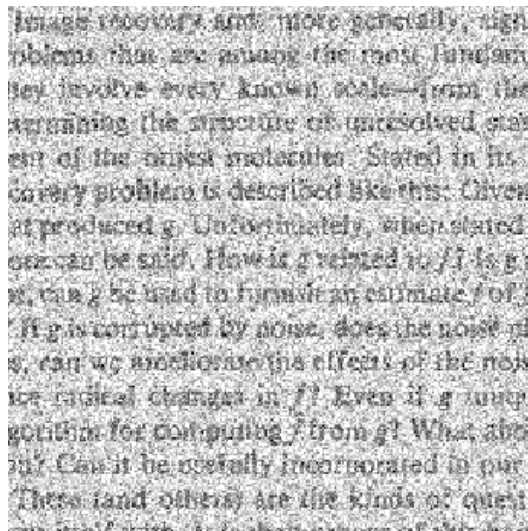 Image recovery and, more generally, sign
oblems that are among the most fundam
hey involve every known scale—from the
termining the structure of unresolved star
ent of the tiniest molecules. Stated in its
covery problem is described like this: Given
at produced g. Unfortunately, when stated
ore can be said. How is g related to f? Is g
or, can g be used to furnish an estimate f of
If g is corrupted by noise, does the noise
s, can we ameliorate the effects of the nois
uce radical changes in f? Even if g uniqu
gorithm for computing f from g? What abo
on? Can it be usefully incorporated in our
These (and others) are the kinds of quest